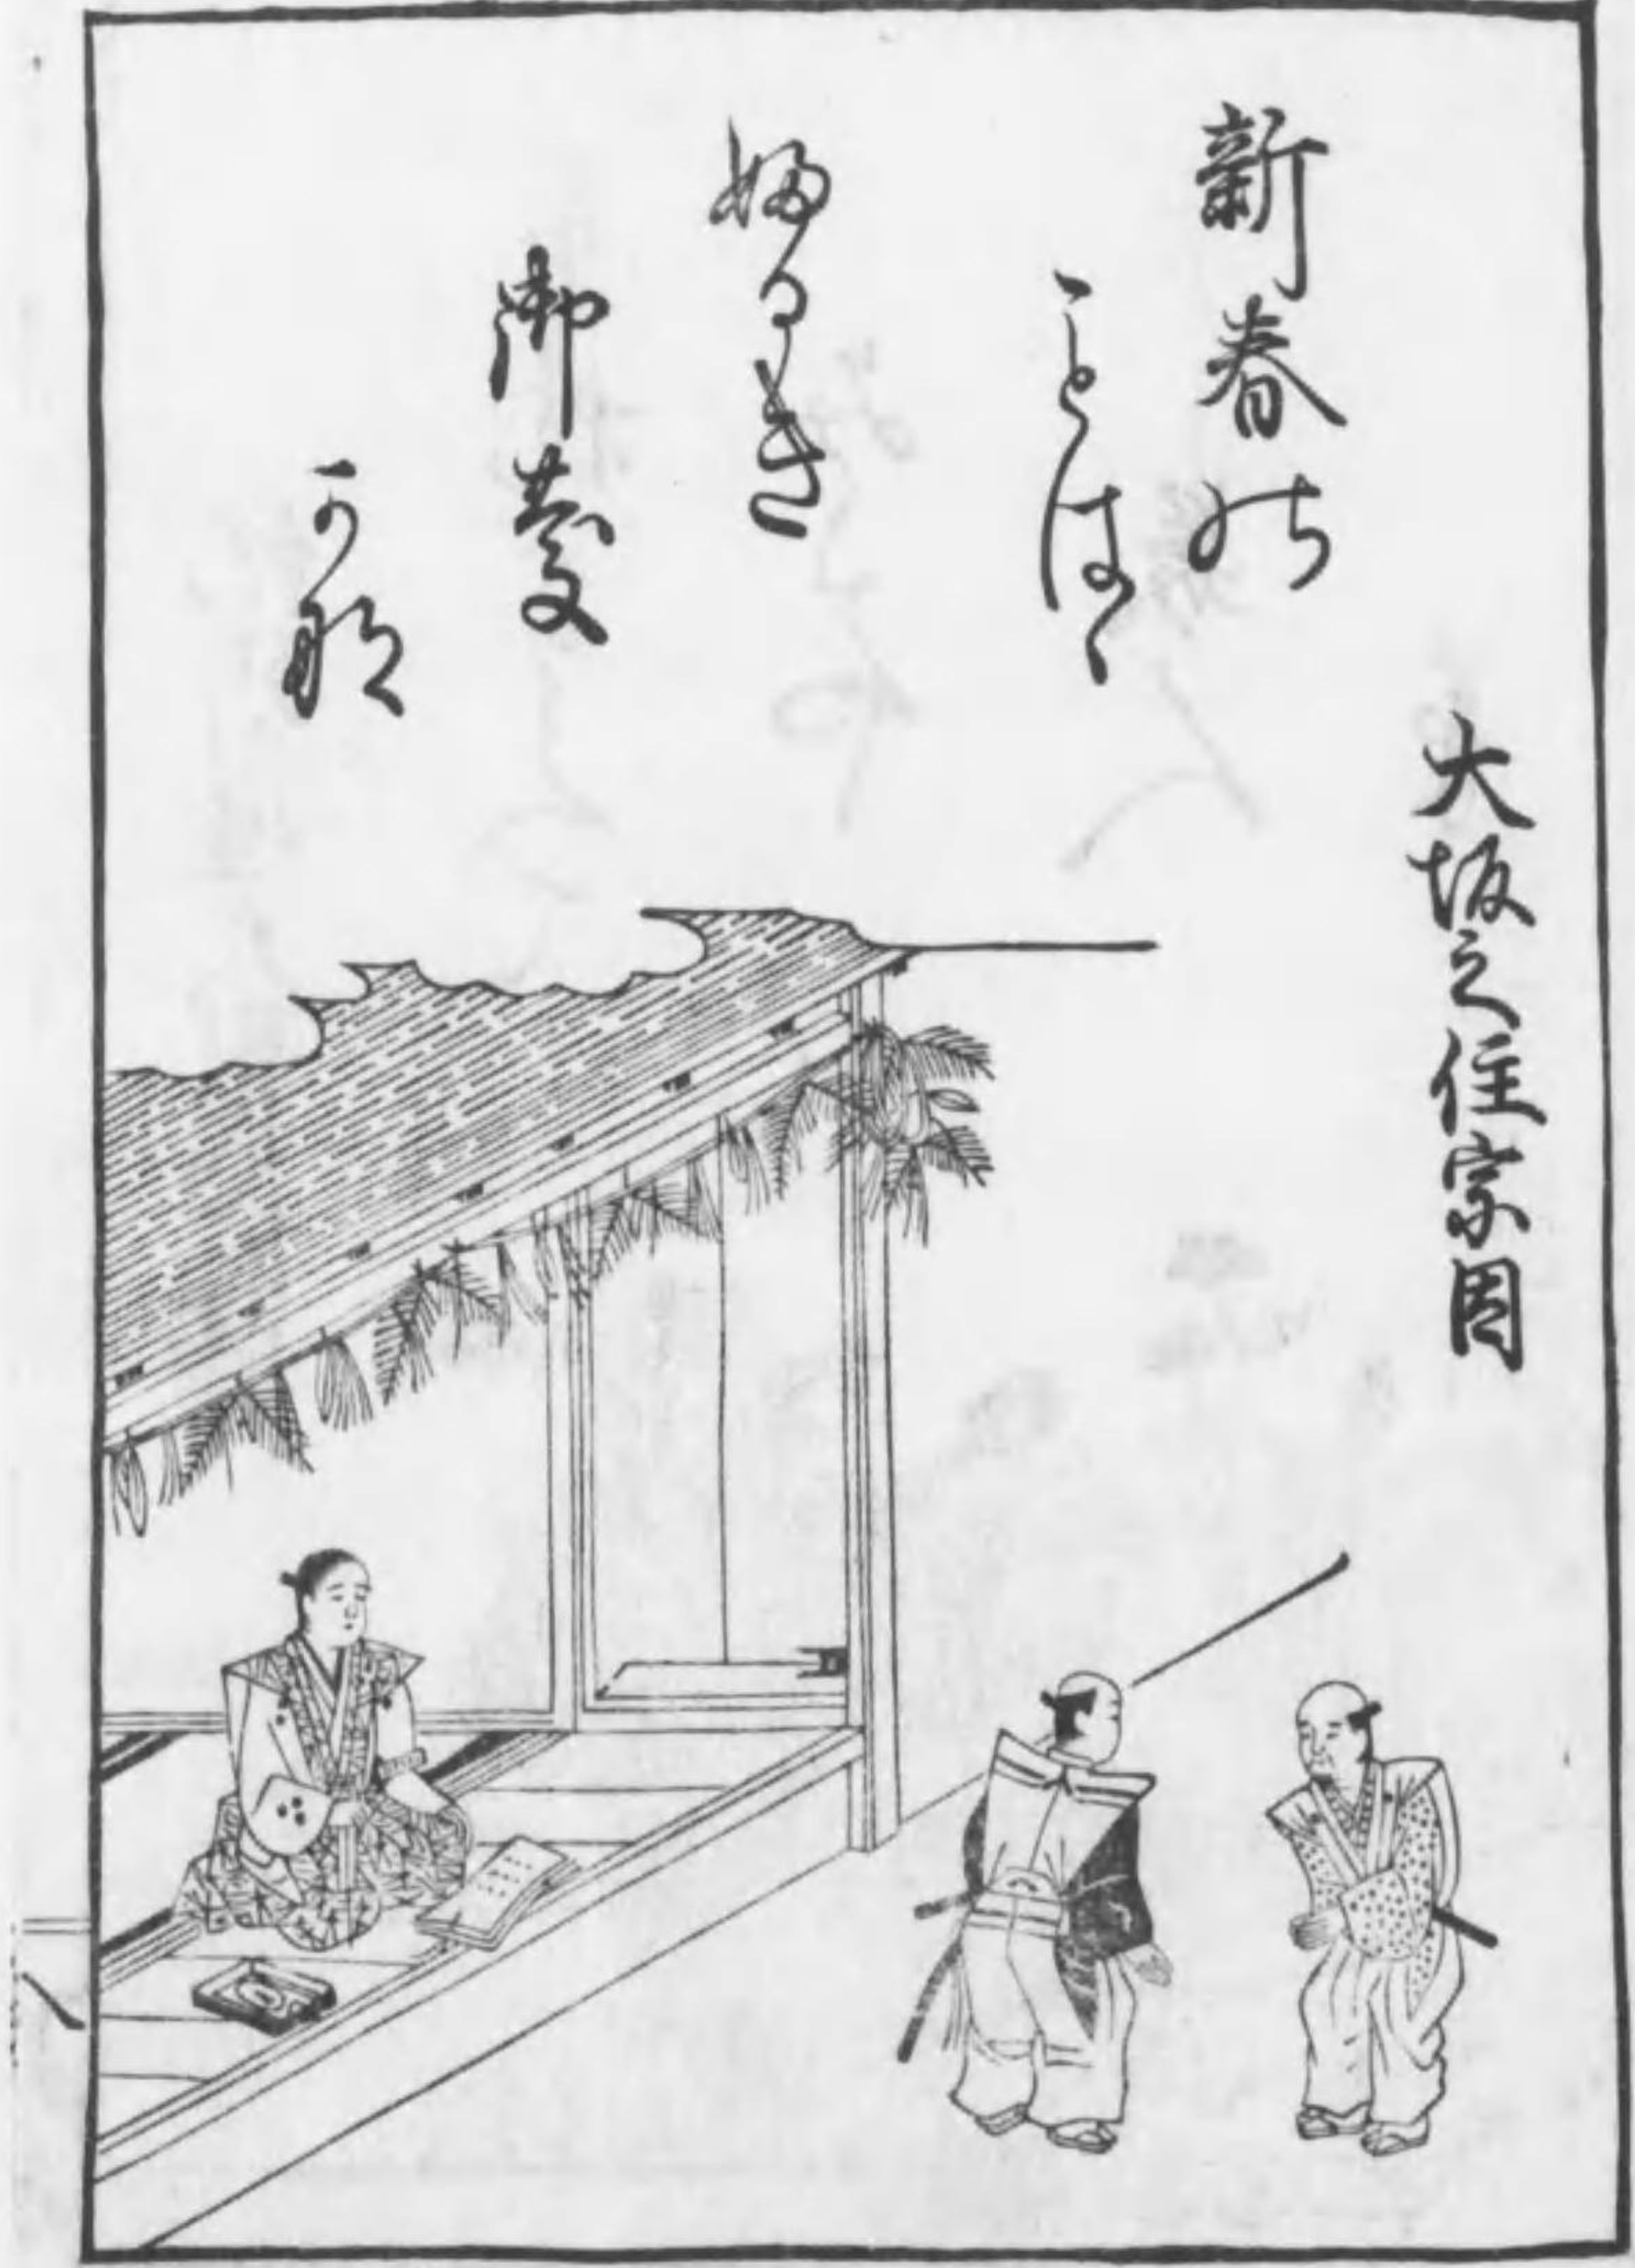 大坂之住宗因
新春の
ことはゝ
ふるき
御慶
かな